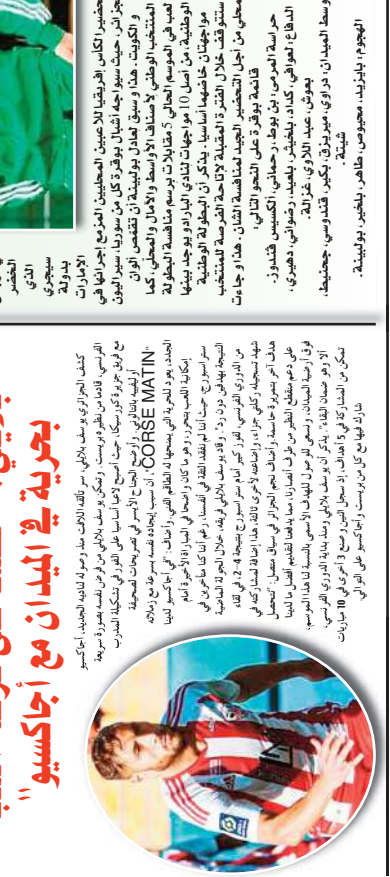 الخضر
الذي
سيجري
بدولة
الإمارات
تحضيرا لكأس إفريقيا للاعبين المحليين المزمع إجرائها في
الجزائر، حيث سيواجه أشبال بوقرة كل من سوريا، سيراليون
و الكويت. هذا و سبق لعادل بولبينة أن تقمص ألوان
المنتخب الوطني لأصناف الأواسط والآمال والمحلي، كما
لعب في الموسم الحالي 5 مقابلات برسم منافسة البطولة
الوطنية، من أصل 10 مواجهات لنادي البارادو يوجد بينها
مواجهتان خاضهما أساسيا. يذكر أن البطولة الوطنية
ستتوقف خلال الفترة المقبلة لإتاحة الفرصة للمنتخب
المحلي من أجل التحضير الجيد لمنافسة الشان، هذا و جاءت
قائمة بوقرة على النحو التالي:
حراسة المرمى: بن بوط، رحماني، ألكسيس قندوز.
الدفاع: لعوافي، كداد، بلخيثر، بلعيد، رضواني، دهيري،
بعوش، عبد اللاوي، غزالة.
وسط الميدان: دراوي، ميريزق، بكير، قندوسي، جحنيط،
شيتة.
الهجوم: بايزيد، محيوص، طاهر، بلخير، بولبينة.
بحرية في الميدان مع أجاكسيو"
كشف الجزائري يوسف بلايلي سر تألقه اللافت منذ وصوله لناديه الجديد، أجاكسيو
الفرنسي، قادما من نظيره بريست. وتمكن يوسف بلايلي من فرض نفسه بصورة سريعة
مع فريق جزيرة كورسيكا، حيث أصبح لاعبا أساسيا على الفور في تشكيلة المدرب
أوليفييه بانتالوني. وأوضح الجناح الأيسر في تصريحات لصحيفة
"CORSE MATIN"، أن سبب إيجاده نفسه بسرعة مع زملائه
الجدد، يعود للحرية التي يمنحها له الطاقم الفني. وأضاف: "في أجاكسيو لدينا
إمكانية اللعب بتحرر، وهو ما كان واضحا في المباراة الأخيرة أمام
ستراسبورج، حيث أننا لم نفقد الثقة في أنفسنا، رغم أننا كنا متأخرين في
النتيجة بهدفين دون رد". وقاد يوسف بلايلي فريقه، خلال الجولة الماضية
من الدوري الفرنسي، لفوز كبير أمام ستراسبورج بنتيجة 4-2، في لقاء
شهد تسجيله ركلتي جزاء، وإضاعته لأخرى ثالثة، هذا إضافة لمشاركته في
هدف آخر بتمريرة حاسمة. وأضاف نجم الجزائر في سياق متصل: "نتحصل
على دعم منقطع النظير من طرف أنصارنا، مما يدفعنا لتقديم أفضل ما لدينا
فوق أرضية الميدان، ونسعى للوصول للهدف الأسمى بالنسبة لنا هذا الموسم،
ألا وهو ضمان البقاء". يذكر أن يوسف بلايلي ومنذ بداية الدوري الفرنسي،
تمكن من المشاركة في 5 أهداف، إذ سجل اثنين وصنع 3 أخرى في 10 مباريات
شارك فيها مع كل من بريست وأجاكسيو على التوالي.